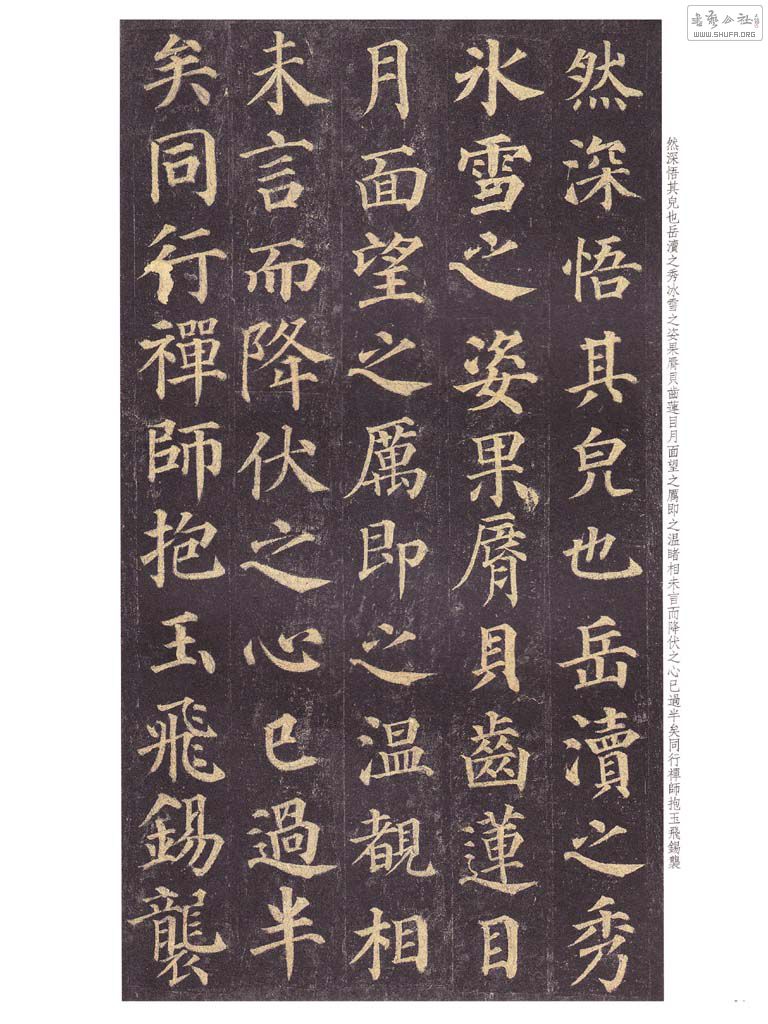 然深悟其皃也岳瀆之秀
氷雪之姿果脣貝齒蓮目
月面望之厲即之温覩相
未言而降伏之心已過半
矣同行禪師抱玉飛錫襲
然深悟其皃也岳瀆之秀冰雪之姿果脣貝齒蓮目月面望之厲即之温睹相未言而降伏之心已過半矣同行禪師抱玉飛錫襲
書藝公社
WWW.SHUFA.ORG